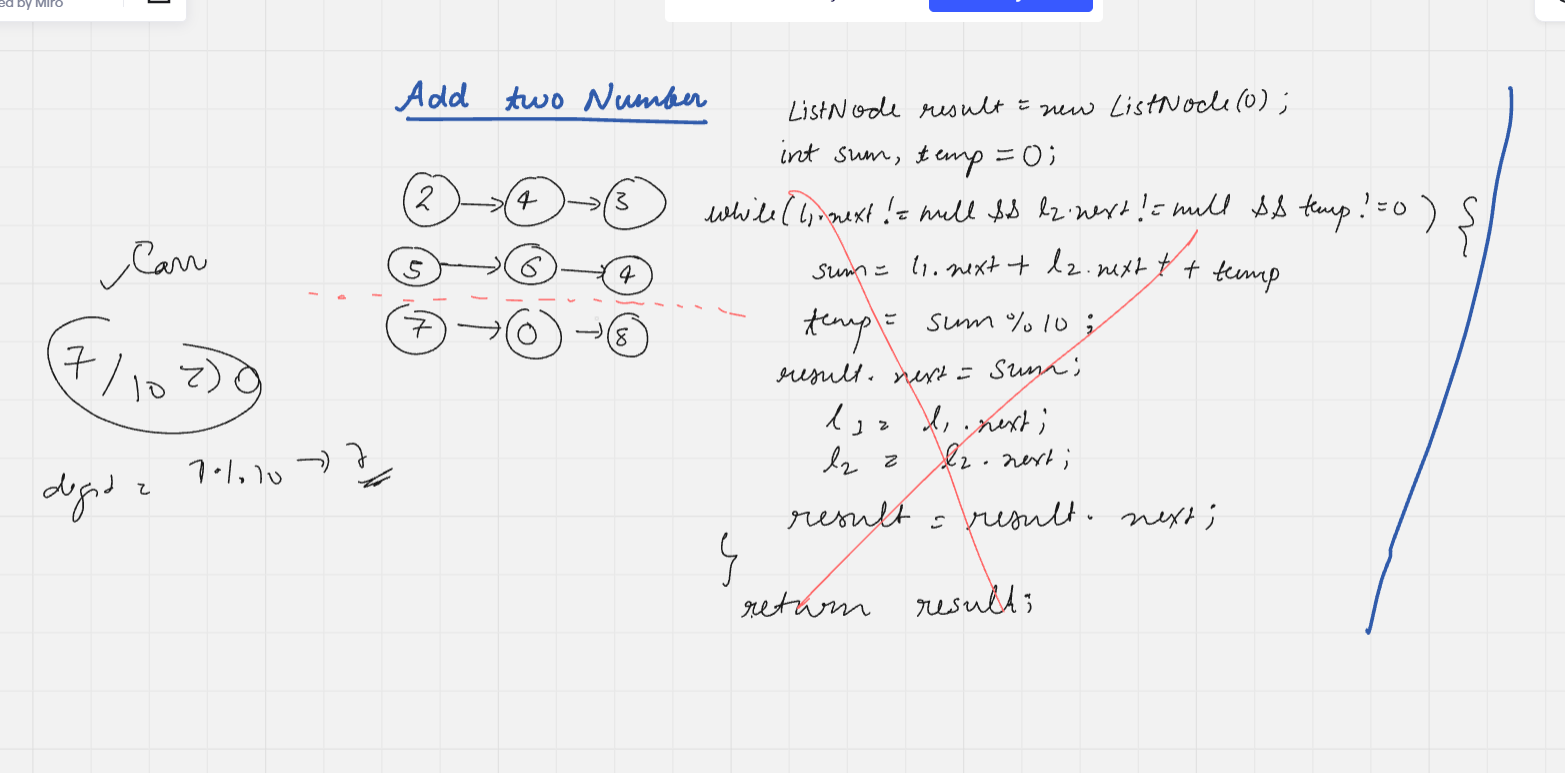 ed by Miro
Add two Number
2 → 4 → 3
5 → 6 → 4
7 → 0 → 8
7/10 => 0
7 % 10 → 7
ListNode result = new ListNode(0) ;
int sum, temp = 0;
while( l1.next != null && l2.next != null && temp != 0 ) {
sum = l1.next + l2.next + + temp
temp = sum % 10 ;
result. next = sum;
l1 = l1.next;
l2 = l2.next;
result = result. next;
}
return result;